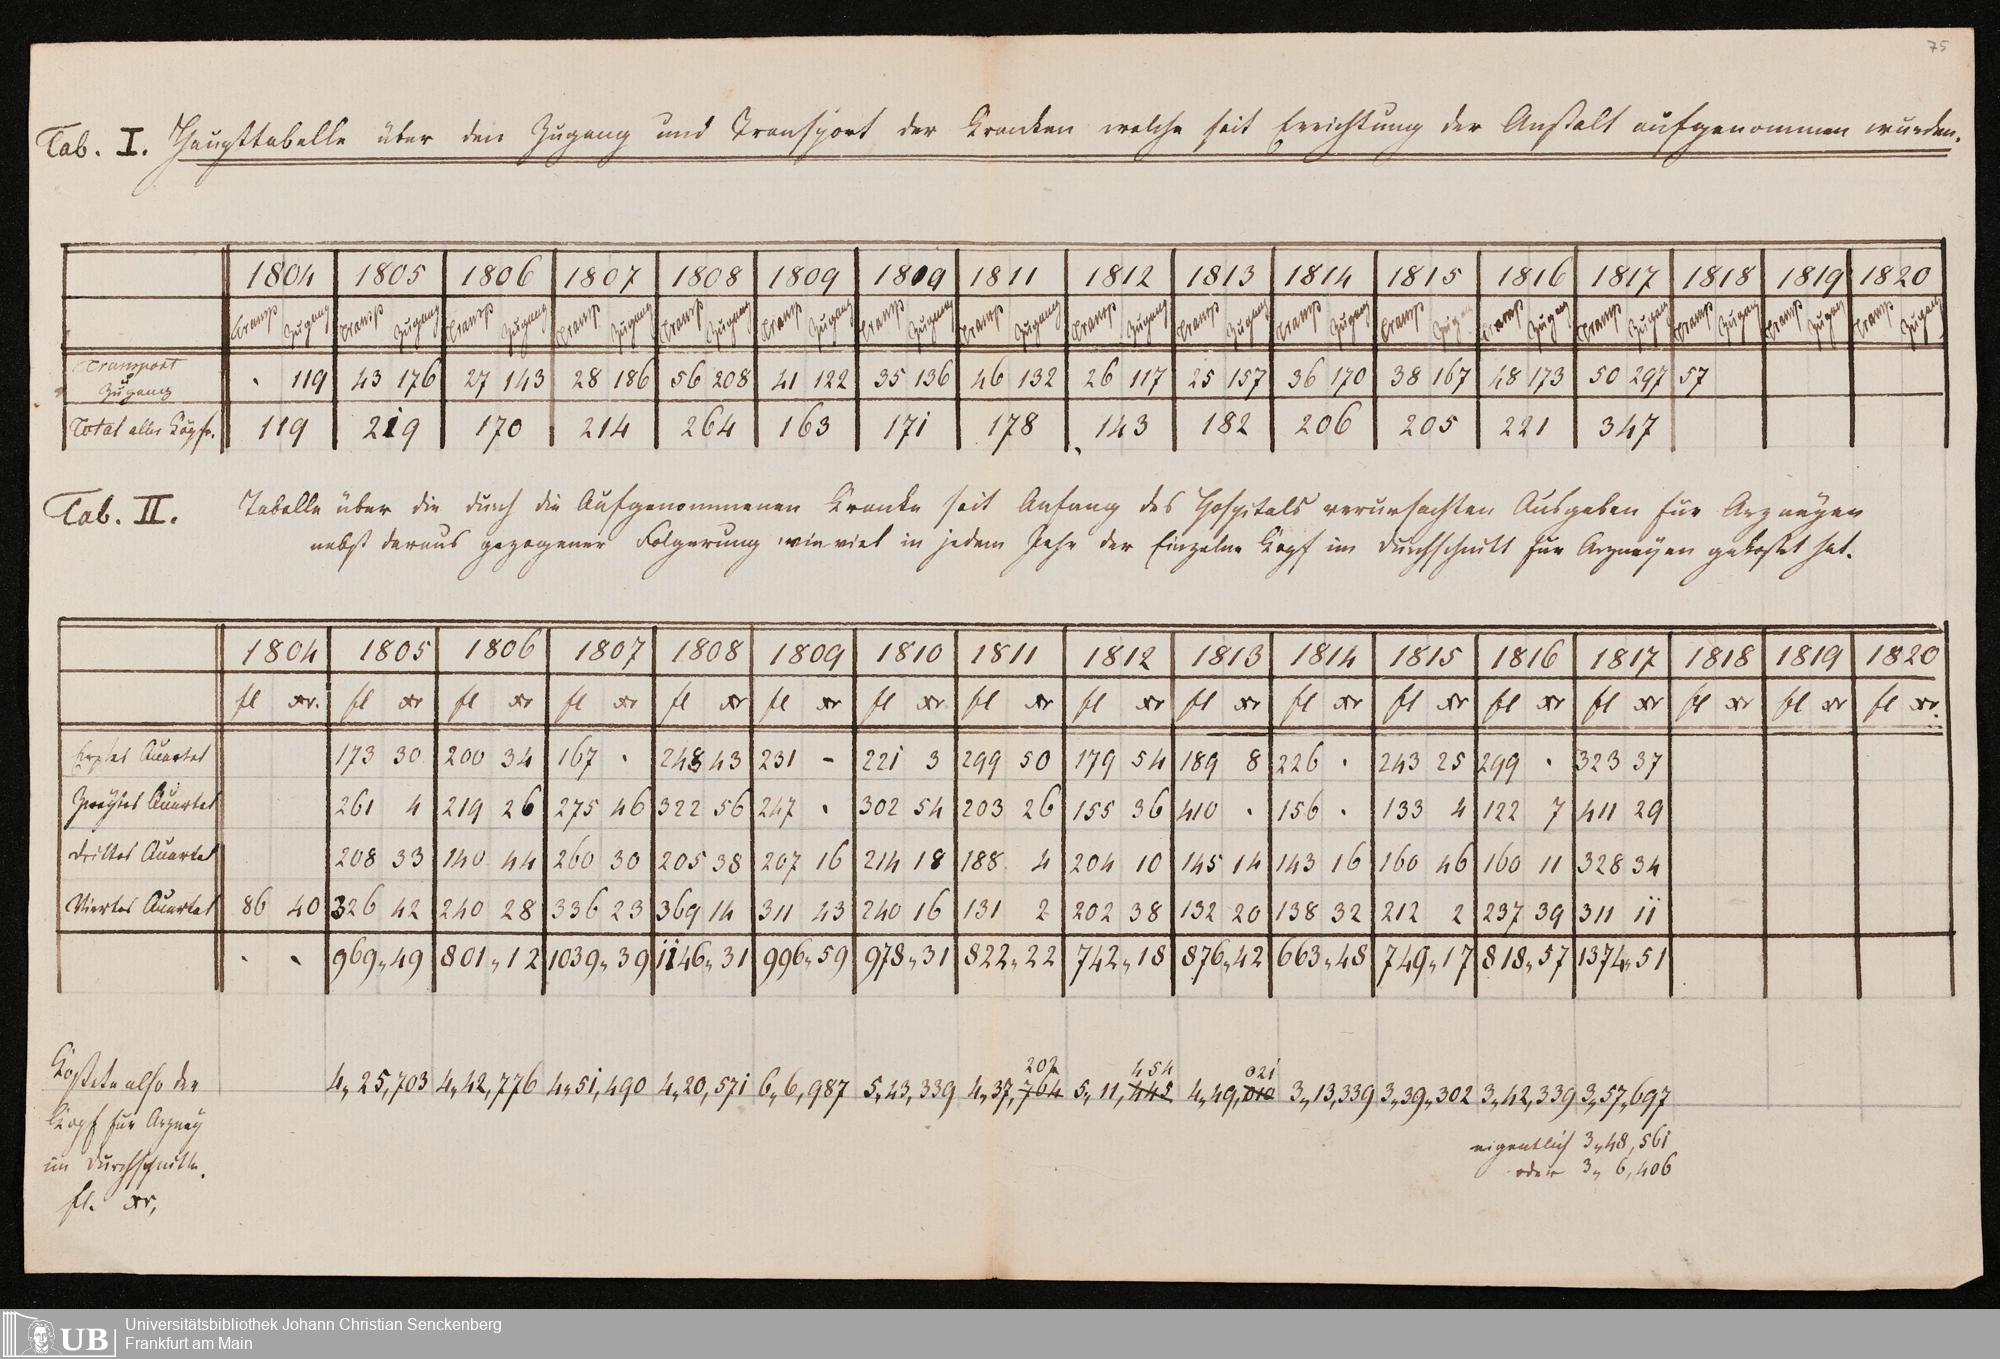 75
Tab. I. Haupttabelle über den Zugang und Transport der Kranken welche seit Errichtung der Anstalt aufgenommen wurden.
1804 1805 1806 1807 1808 1809 1809 1811 1812 1813 1814 1815 1816 1817 1818 1819 1820
Transp Zugang Transp Zugang Transp Zugang Transp Zugang Transp Zugang Transp Zugang Transp Zugang Transp Zugang Transp Zugang Transp Zugang Transp Zugang Transp Zugang Transp Zugang Transp Zugang Transp Zugang Transp Zugang Transp Zugang
Transport
Zugang
. 119 43 176 27 143 28 186 56 208 41 122 35 136 46 132 26 117 25 157 36 170 38 167 48 173 50 297 57
Total aller Köpfe. 119 219 170 214 264 163 171 178 143 182 206 205 221 347
Tab. II. Tabelle über die durch die Aufgenommenen Kranke seit Anfang des Hospitals verursachten Ausgaben für Arzneyen
nebst daraus gezogener Folgerung wie viel in jedem Jahr der Einzelne Kopf im Durchschnitt für Arzneyen gekostet hat.
1804 1805 1806 1807 1808 1809 1810 1811 1812 1813 1814 1815 1816 1817 1818 1819 1820
fl xr. fl xr fl xr fl xr fl xr fl xr fl xr. fl xr fl xr fl xr fl xr fl xr fl xr fl xr fl xr fl xr fl xr.
Erstes Quartal 173 30 200 34 167 . 248 43 231 – 221 3 299 50 179 54 189 8 226 . 243 25 299 . 323 37
Zweytes Quartal 261 4 219 26 275 46 322 56 247 . 302 54 203 26 155 36 410 . 156 . 133 4 122 7 411 29
Drittes Quartal 208 33 140 44 260 30 205 38 207 16 214 18 188 4 204 10 145 14 143 16 160 46 160 11 328 34
Viertes Quartal 86 40 326 42 240 28 336 23 369 14 311 43 240 16 131 2 202 38 132 20 138 32 212 2 237 39 311 11
. . 969„49 801„12 1039„39 1146„31 996„59 978„31 822„22 742„18 876„42 663„48 749„17 818„57 1374„51
202 454 021
Kostete also der 4„25,703 4„42,776 4„51,490 4„20,571 6„6,987 5„43,339 4„37,764 5„11,442 4„49,010 3„13,339 3„39„302 3„42,339 3„57„697
Kopf für Arzney
im Durchschnitte.
fl. xr,
eigentlich 3„48,561
oder 3„ 6,406
UB Universitätsbibliothek Johann Christian Senckenberg
Frankfurt am Main